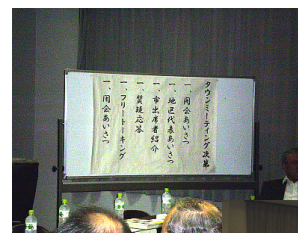 タウンミーティング次第
一、開会あいさつ
一、地区代表あいさつ
一、市出席者紹介
一、質疑応答
一、フリートーキング
一、閉会あいさつ